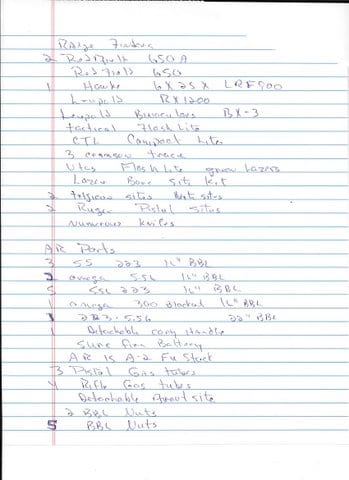 Range Finders
2 Redfield 650 A
Redfield 650
1 Hawke 6 x 25 x LRF 900
Leupold RX 1200
Leupold Binoculars BX-3
tactical Flash Lite
CTC Compact Lite
3 crimson trace
Utas Flash Lite green Lazers
Lazer Bore Site Kit
2 sites
2 Ruger Pistol Sites
Numerous Knifes
AR Parts
3 SS 223 16" BBL
2 omega 5.56 16" BBL
5 SSL 223 16" BBL
1 omega 300 Blackout 16" BBL
1 223-5.56 22" BBL
1 Detachable cary Handle
Sure Fire Battery
AR 15 A-2 Fu Stock
3 Pistol Gas tubes
4 Rifle Gas tubes
Detachable Front site
2 BBL Nuts
5 BBL Nuts